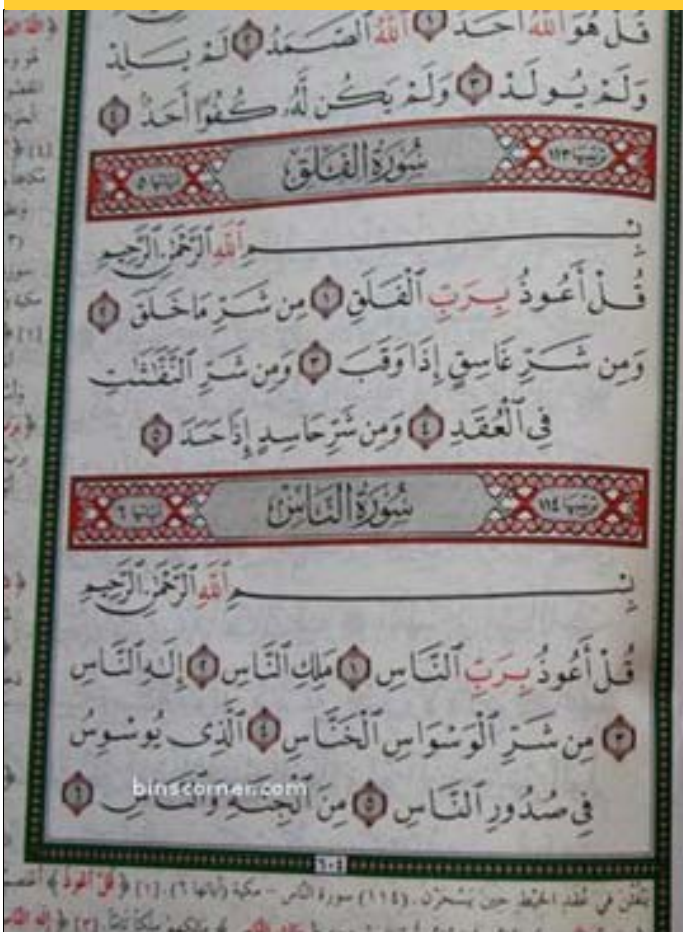 قُلْ هُوَ ٱللَّهُ أَحَدٌ ١ ٱللَّهُ ٱلصَّمَدُ ٢ لَمْ يَلِدْ
وَلَمْ يُولَدْ ٣ وَلَمْ يَكُن لَّهُۥ كُفُوًا أَحَدٌۢ ٤
ترتيبها ١١٣ سُورَةُ الفَلَقِ آياتها ٥
بِسْمِ ٱللَّهِ ٱلرَّحْمَٰنِ ٱلرَّحِيمِ
قُلْ أَعُوذُ بِرَبِّ ٱلْفَلَقِ ١ مِن شَرِّ مَا خَلَقَ ٢
وَمِن شَرِّ غَاسِقٍ إِذَا وَقَبَ ٣ وَمِن شَرِّ ٱلنَّفَّٰثَٰتِ
فِى ٱلْعُقَدِ ٤ وَمِن شَرِّ حَاسِدٍ إِذَا حَسَدَ ٥
ترتيبها ١١٤ سُورَةُ النَّاسِ آياتها ٦
بِسْمِ ٱللَّهِ ٱلرَّحْمَٰنِ ٱلرَّحِيمِ
قُلْ أَعُوذُ بِرَبِّ ٱلنَّاسِ ١ مَلِكِ ٱلنَّاسِ ٢ إِلَٰهِ ٱلنَّاسِ
٣ مِن شَرِّ ٱلْوَسْوَاسِ ٱلْخَنَّاسِ ٤ ٱلَّذِى يُوَسْوِسُ
فِى صُدُورِ ٱلنَّاسِ ٥ مِنَ ٱلْجِنَّةِ وَٱلنَّاسِ ٦
binscorner.com
٦٠٤
في عُقَد الخيط حين يَسْحَرْن. (١١٤) سورة الناس - مكية (آياتها ٦). [١] ﴿قُلْ أَعُوذُ﴾